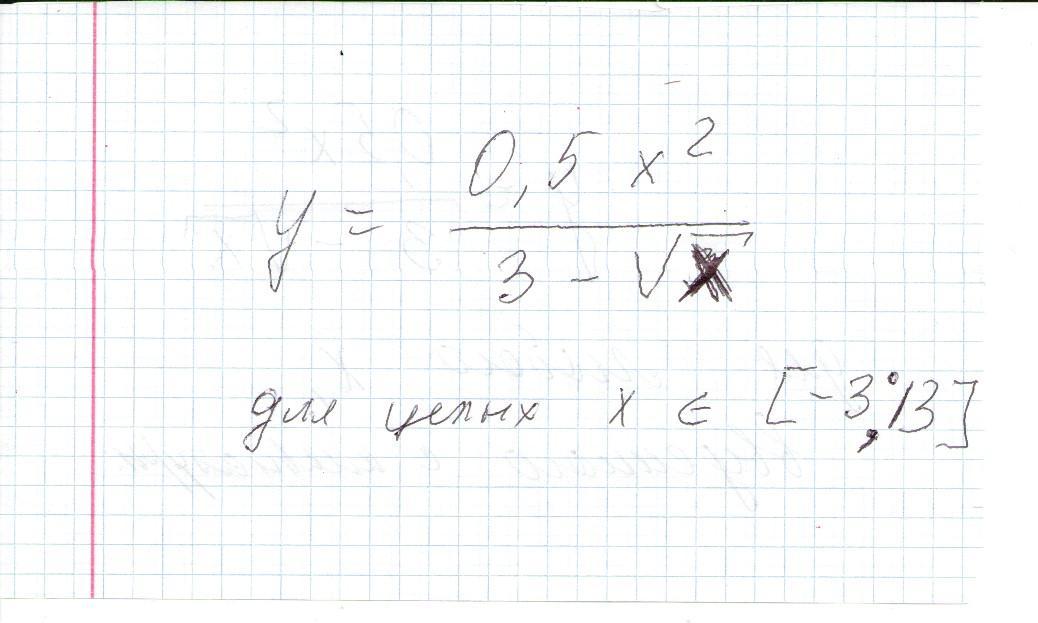 y = 0,5 x² / 3 - √x
для целых x ∈ [-3;13]